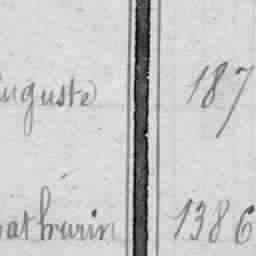 uguste 187
athurin 1386